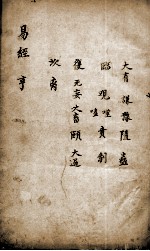 大有謙豫隨蠱
臨觀噬嗑賁剝
復无妄大畜頤大過
坎离
易經亨